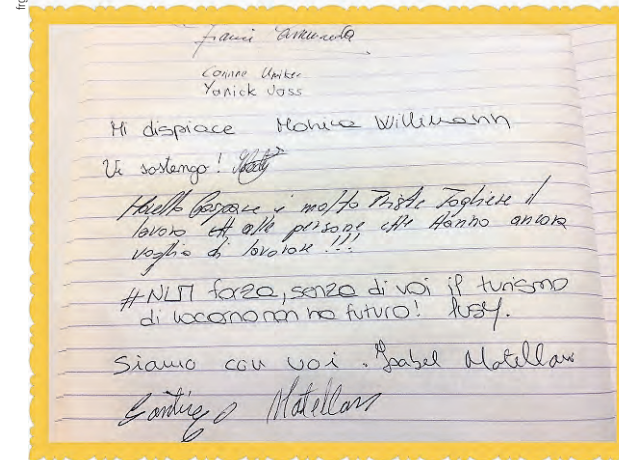 Corinne
Yanick Voss
Mi dispiace Monica Willimann
Vi sostengo!
Gaspare è molto triste togliere il
lavoro alle persone che hanno ancora
voglia di lavorare !!!
#NLM forza, senza di voi il turismo
di Locarno non ha futuro! Pusy.
Siamo con voi. Isabel Matellan
Matellan